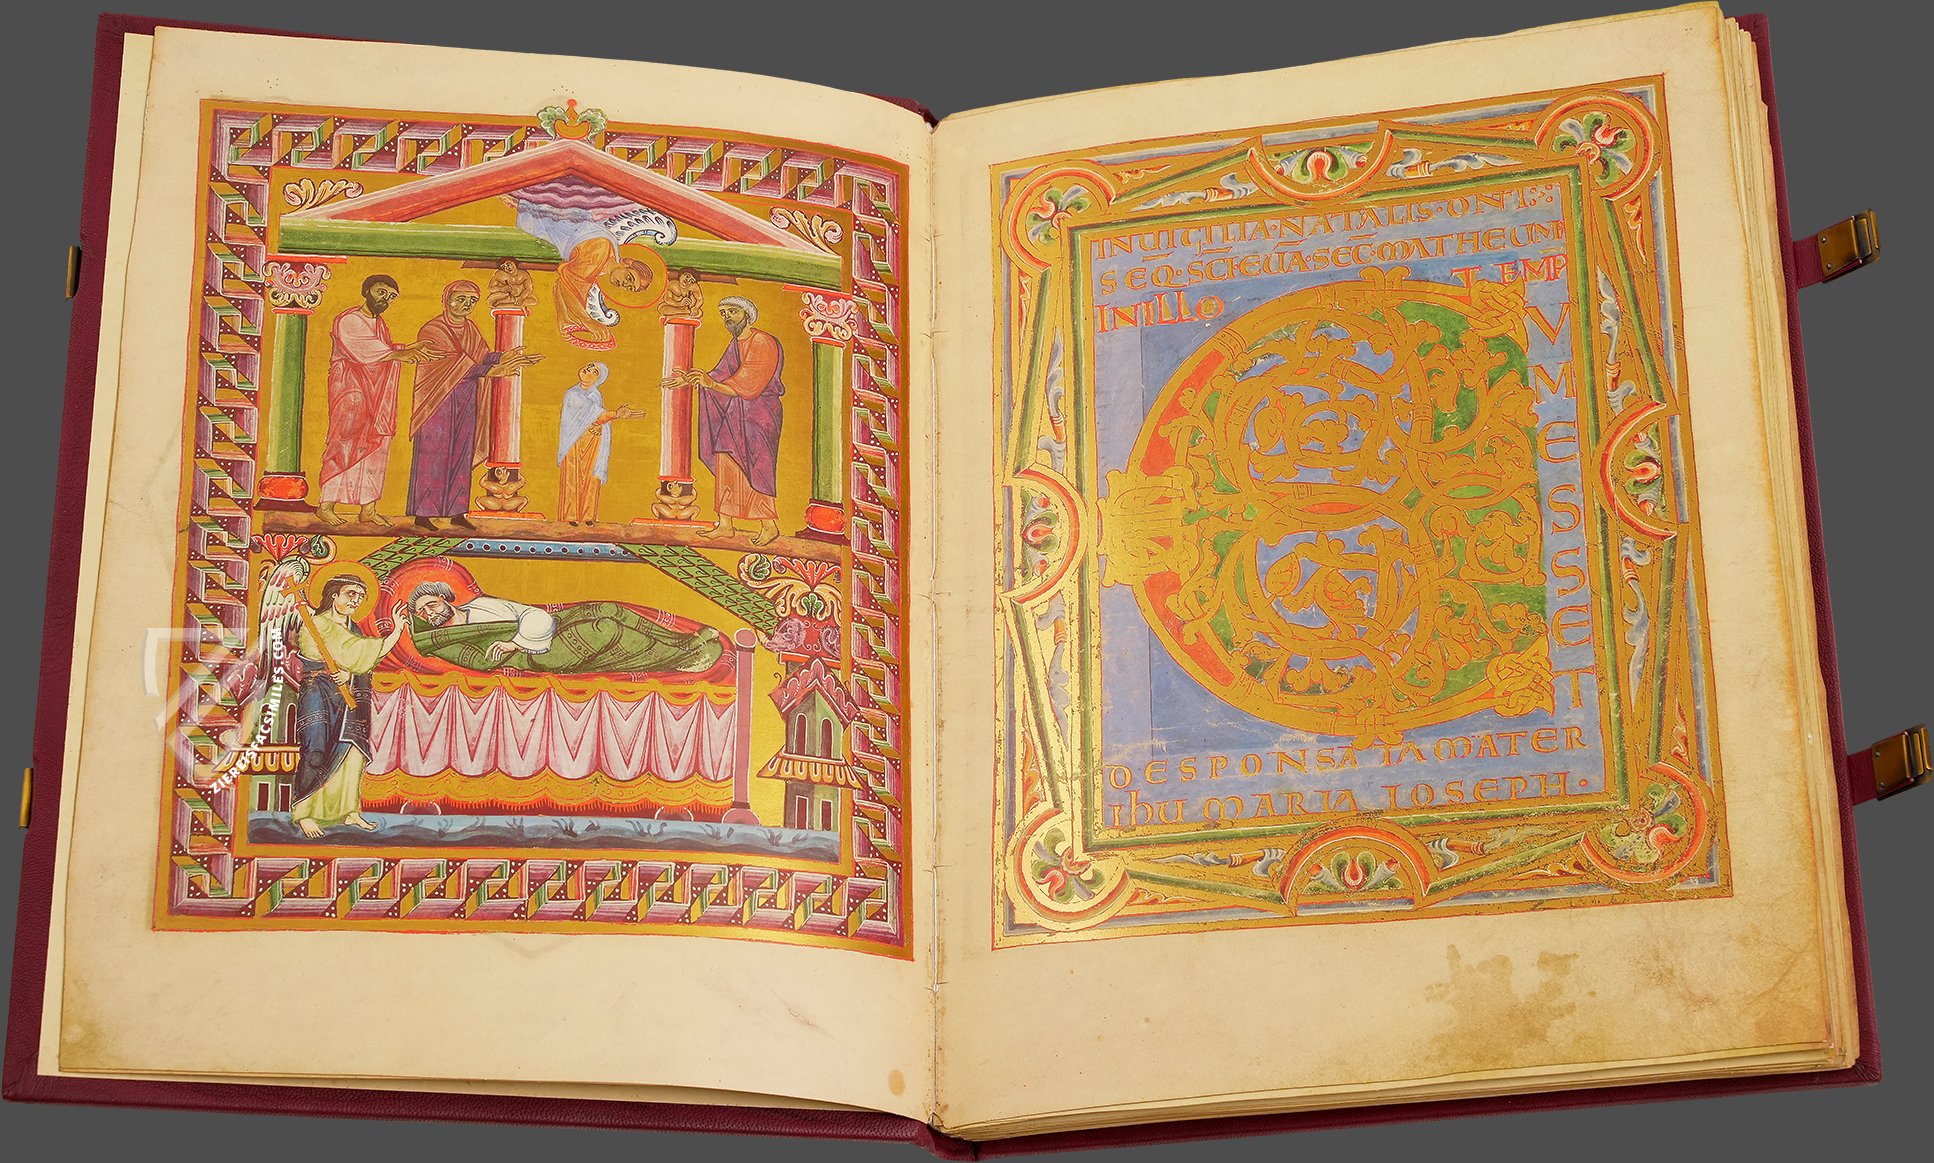 ZIEREISFACSIMILES.COM
INVIGILIA·NATALIS·DNI
SEQ·SCI·EVA·SEC·MATHEUM
INILLO TEMP
CUM ESSET
DESPONSATA MATER
IHU MARIA IOSEPH·